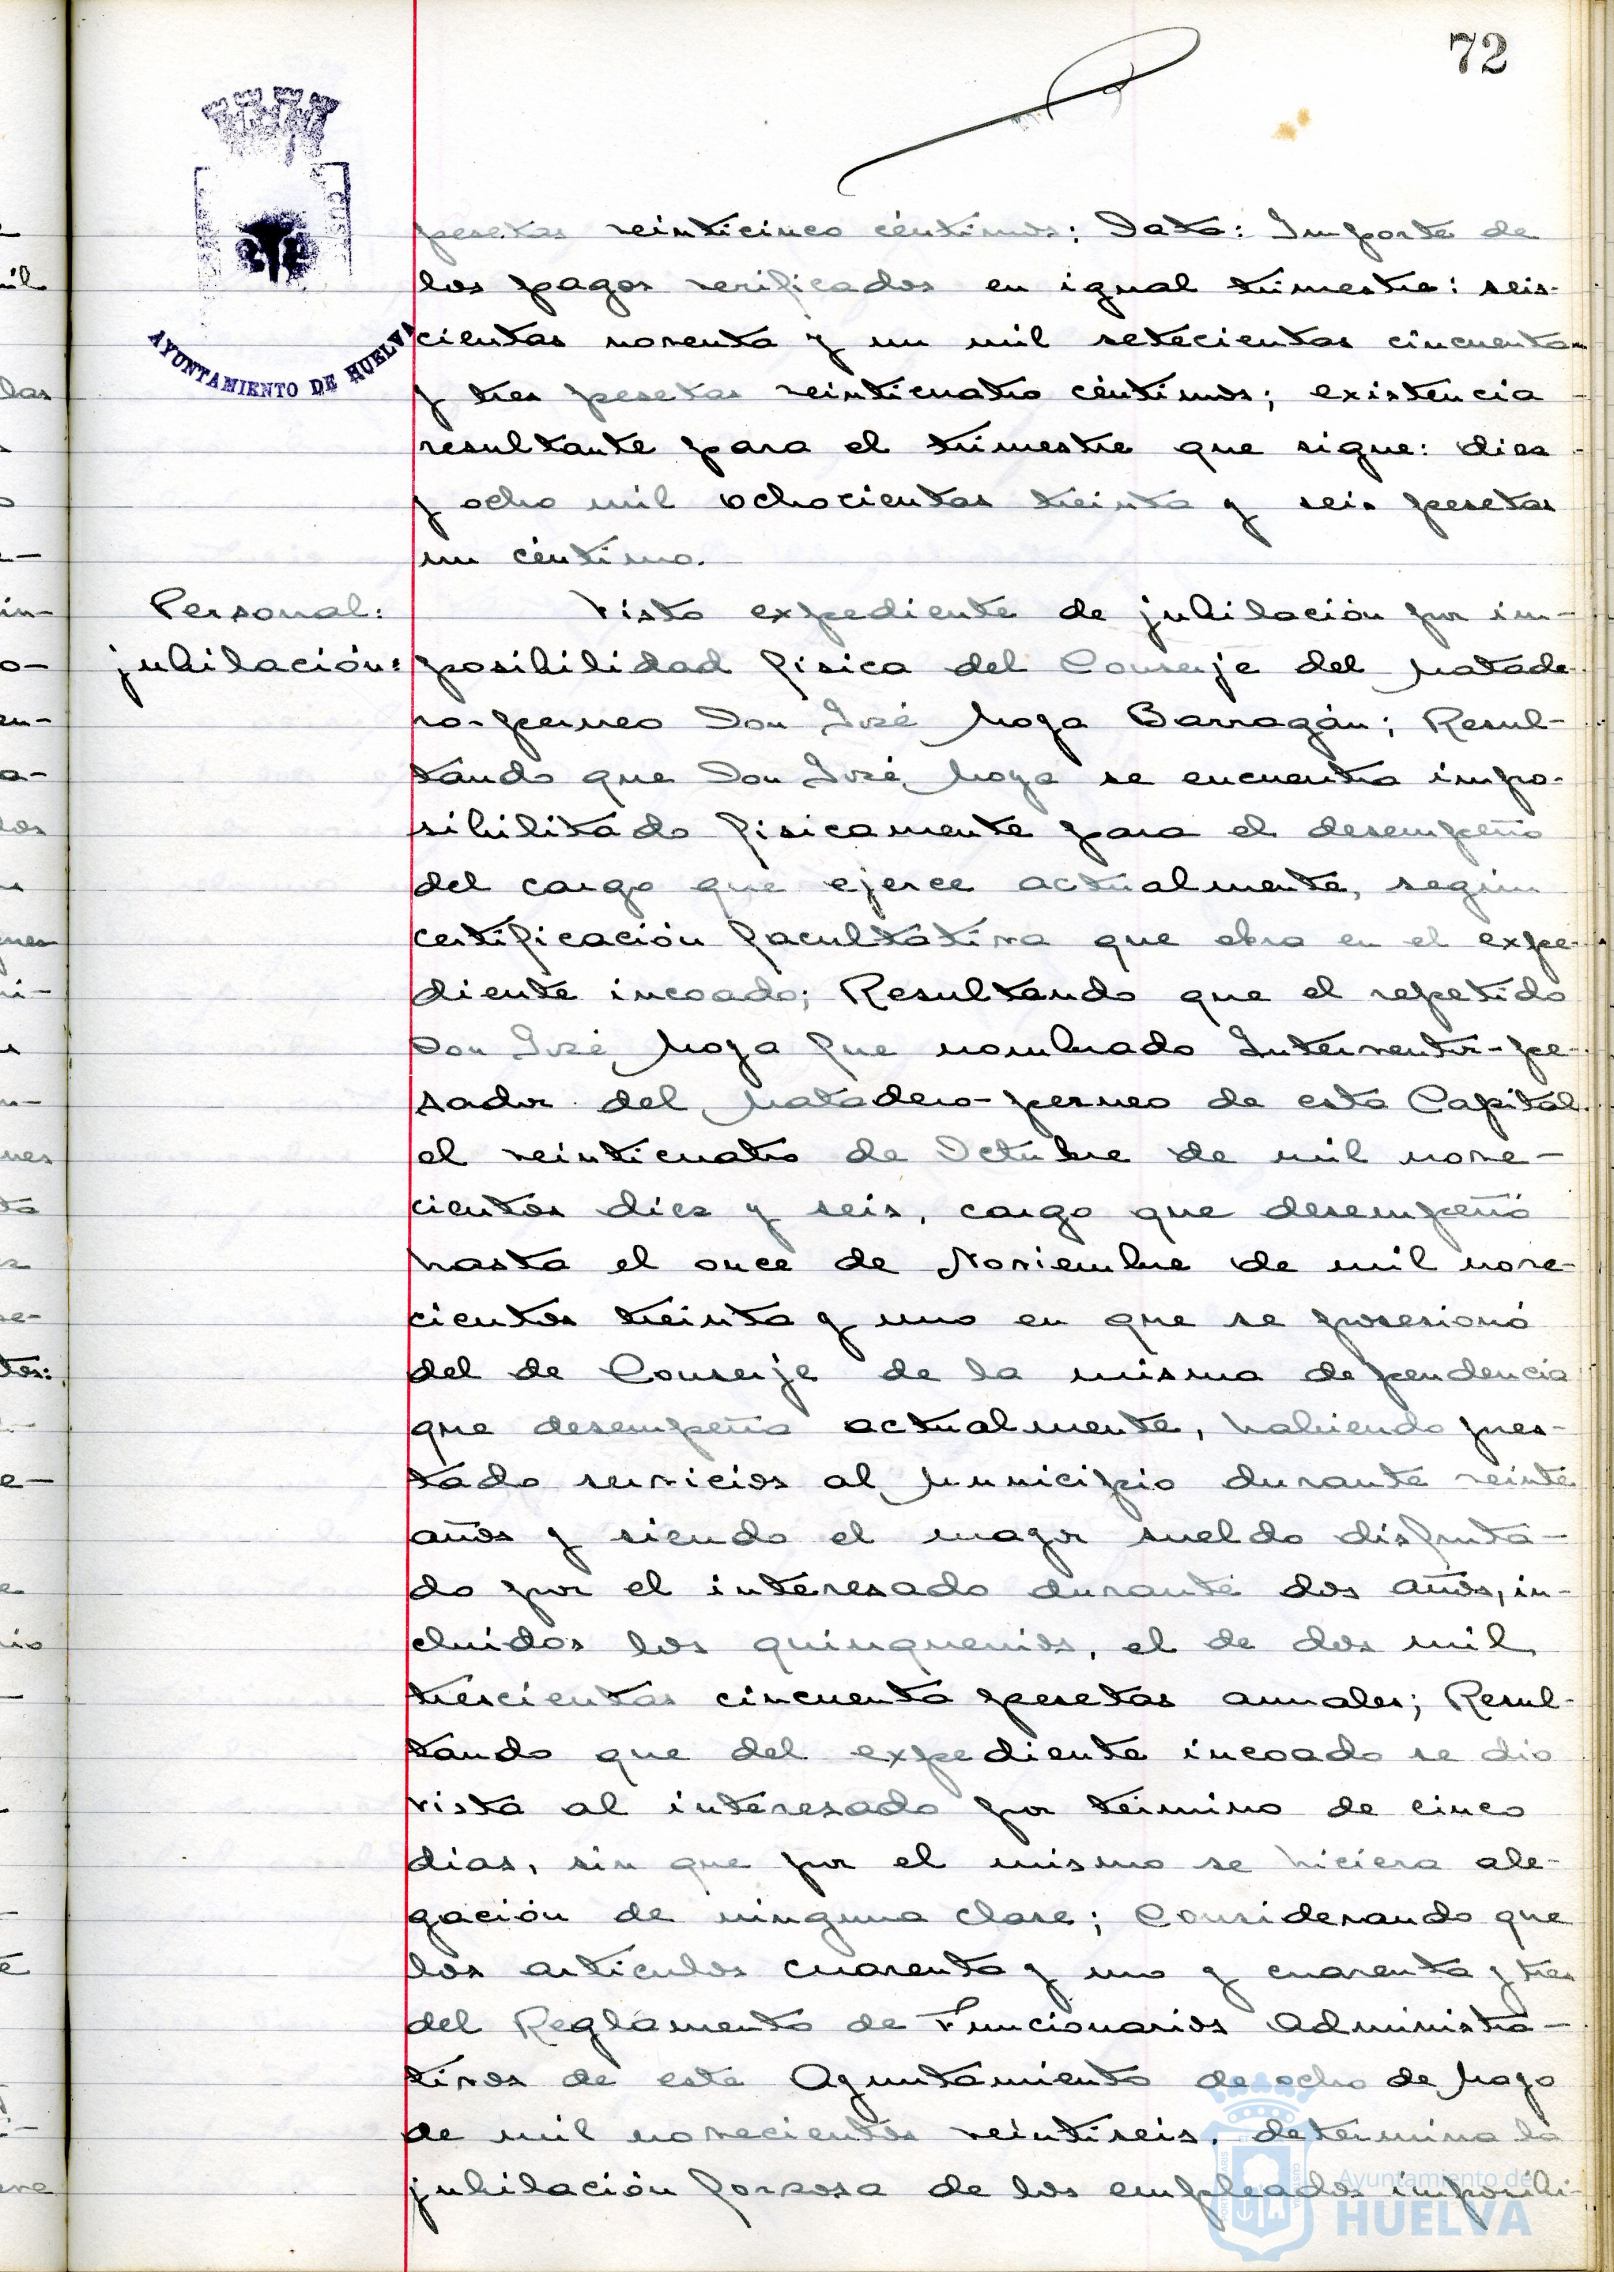 72
AYUNTAMIENTO DE HUELVA
pesetas veinticinco céntimos; Data: Importe de
los pagos verificados en igual trimestre: seis-
cientas noventa y un mil setecientas cincuenta
y tres pesetas veinticuatro céntimos; existencia
resultante para el trimestre que sigue: diez
y ocho mil ochocientas treinta y seis pesetas
un céntimo.
Personal:
jubilación:
Visto expediente de jubilación por im-
posibilidad física del Conserje del Matade-
ro-perneo Don José Moya Barragán; Resul-
tando que Don José Moya se encuentra impo-
sibilitado fisicamente para el desempeño
del cargo que ejerce actualmente, según
certificación facultativa que obra en el expe-
diente incoado; Resultando que el repetido
Don José Moya fue nombrado Interventor-pe-
sador del Matadero-perneo de esta Capital
el veinticuatro de Octubre de mil nove-
cientos diez y seis, cargo que desempeñó
hasta el once de Noviembre de mil nove-
cientos treinta y uno en que se posesionó
del de Conserje de la misma dependencia
que desempeña actualmente, habiendo pres-
tado servicios al Municipio durante veinte
años y siendo el mayor sueldo disfruta-
do por el interesado durante dos años, in-
cluidos los quinquenios, el de dos mil
trescientas cincuenta pesetas anuales; Resul-
tando que del expediente incoado se dio
vista al interesado por término de cinco
dias, sin que por el mismo se hiciera ale-
gación de ninguna clase; Considerando que
los artículos cuarenta y uno y cuarenta y tres
del Reglamento de Funcionarios Administra-
tivos de este Ayuntamiento de ocho de Mayo
de mil novecientos veintiseis, determina la
jubilación forzosa de los empleados imposibi-
Ayuntamiento de
HUELVA